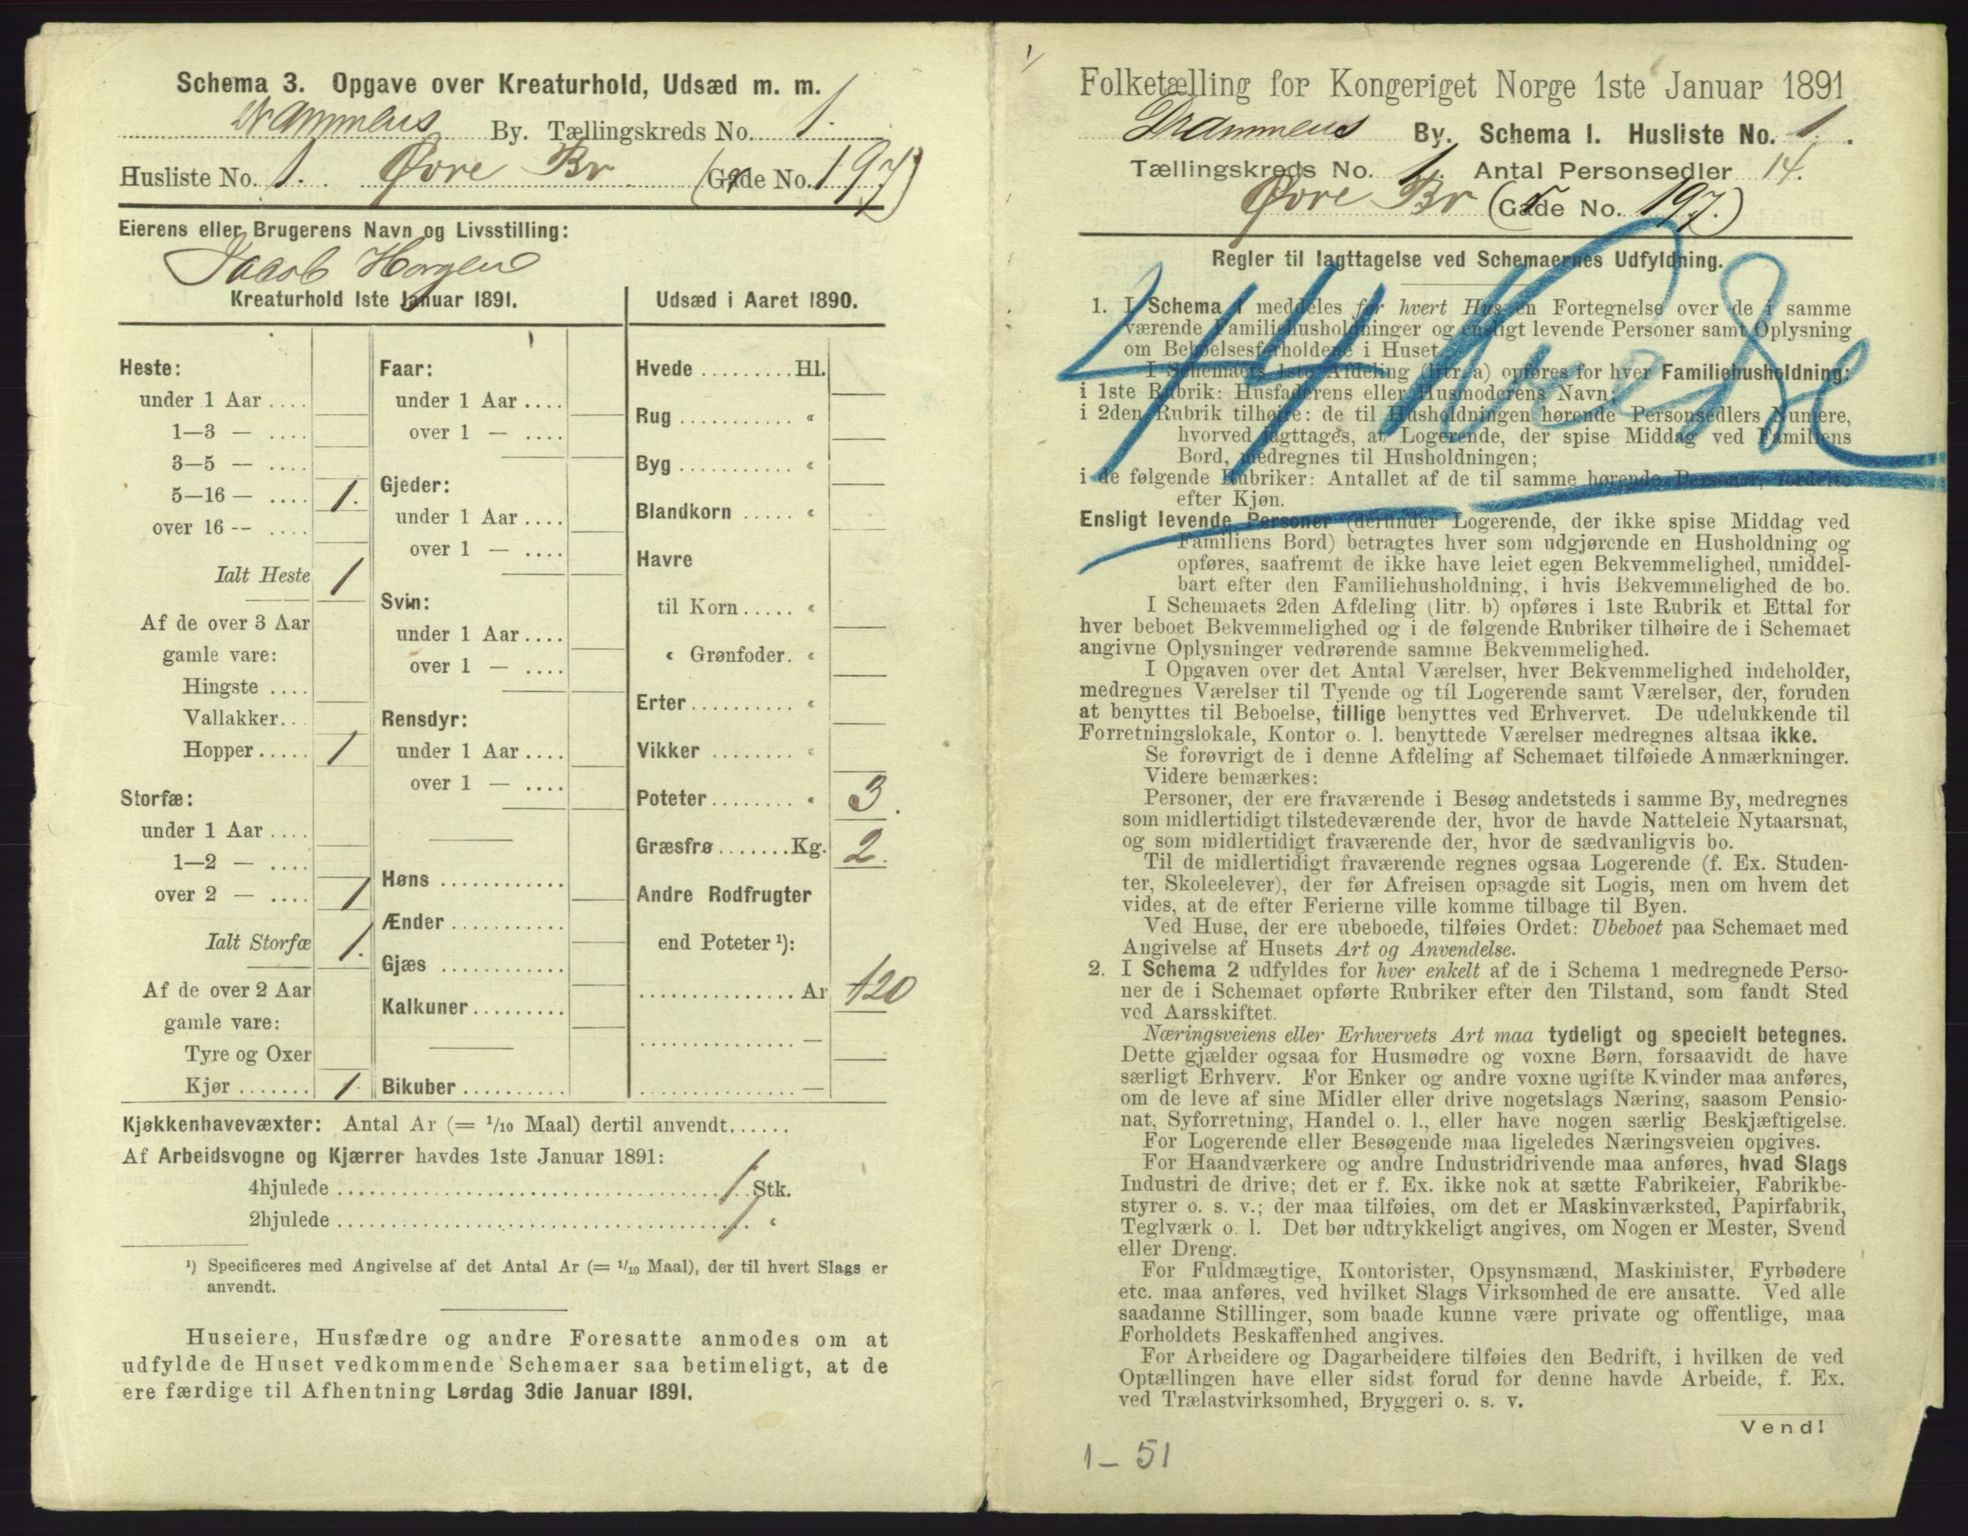 Schema 3. Opgave over Kreaturhold, Udsæd m. m.
Drammens By. Tællingskreds No. 1.
Husliste No. 1. Øvre Br (Gade No. 197)
Eierens eller Brugerens Navn og Livsstilling:
Jacob Horgen
Kreaturhold 1ste Januar 1891.
Heste:
under 1 Aar ....
1—3 — ....
3—5 — ....
5—16 — .... 1.
over 16 -- ....
Ialt Heste 1
Af de over 3 Aar
gamle vare:
Hingste ....
Vallakker..
Hopper ..... 1
Storfæ:
under 1 Aar ....
1—2 — ....
over 2 — .... 1
Ialt Storfæ 1.
Af de over 2 Aar
gamle vare:
Tyre og Oxer
Kjør ....... 1.
Faar:
under 1 Aar ....
over 1 — ....
Gjeder:
under 1 Aar ....
over 1 — ....
Svin:
under 1 Aar ....
over 1 — ....
Rensdyr:
under 1 Aar ....
over 1 — ....
Høns ............
Ænder ...........
Gjæs ............
Kalkuner.........
Bikuber..........
Udsæd i Aaret 1890.
Hvede .........Hl.
Rug ............ «
Byg ............ «
Blandkorn ..... «
Havre
til Korn..... «
« Grønfoder. «
Erter.......... «
Vikker ........ «
Poteter........ « 3.
Græsfrø.......Kg. 2.
Andre Rodfrugter
end Poteter ¹):
............... Ar 120
............... —
............... —
Kjøkkenhavevæxter: Antal Ar (= 1/10 Maal) dertil anvendt......
Af Arbeidsvogne og Kjærrer havdes 1ste Januar 1891:
4hjulede ........................................ 1 Stk.
2hjulede ........................................ 1 «
¹) Specificeres med Angivelse af det Antal Ar (= 1/10 Maal), der til hvert Slags er
anvendt.
Huseiere, Husfædre og andre Foresatte anmodes om at
udfylde de Huset vedkommende Schemaer saa betimeligt, at de
ere færdige til Afhentning Lørdag 3die Januar 1891.
Folketælling for Kongeriget Norge 1ste Januar 1891
Drammens By. Schema 1. Husliste No. 1.
Tællingskreds No. 1. Antal Personsedler 14.
Øvre Br (Gade No. 197.)
Regler til Iagttagelse ved Schemaernes Udfyldning.
1. I Schema 1 meddeles for hvert Hus en Fortegnelse over de i samme
værende Familiehusholdninger og ensligt levende Personer samt Oplysning
om Beboelsesforholdene i Huset.
I Schemaets 1ste Afdeling (litr. a) opføres for hver Familiehusholdning:
i 1ste Rubrik: Husfaderens eller Husmoderens Navn;
i 2den Rubrik tilhøire: de til Husholdningen hørende Personsedlers Numere,
hvorved iagttages, at Logerende, der spise Middag ved Familiens
Bord, medregnes til Husholdningen;
i de følgende Rubriker: Antallet af de til samme hørende Personer, fordelte
efter Kjøn.
Ensligt levende Personer (derunder Logerende, der ikke spise Middag ved
Familiens Bord) betragtes hver som udgjørende en Husholdning og
opføres, saafremt de ikke have leiet egen Bekvemmelighed, umiddel-
bart efter den Familiehusholdning, i hvis Bekvemmelighed de bo.
I Schemaets 2den Afdeling (litr. b) opføres i 1ste Rubrik et Ettal for
hver beboet Bekvemmelighed og i de følgende Rubriker tilhøire de i Schemaet
angivne Oplysninger vedrørende samme Bekvemmelighed.
I Opgaven over det Antal Værelser, hver Bekvemmelighed indeholder,
medregnes Værelser til Tyende og til Logerende samt Værelser, der, foruden
at benyttes til Beboelse, tillige benyttes ved Erhvervet. De udelukkende til
Forretningslokale, Kontor o. l. benyttede Værelser medregnes altsaa ikke.
Se forøvrigt de i denne Afdeling af Schemaet tilføiede Anmærkninger.
Videre bemærkes:
Personer, der ere fraværende i Besøg andetsteds i samme By, medregnes
som midlertidigt tilstedeværende der, hvor de havde Natteleie Nytaarsnat,
og som midlertidigt fraværende der, hvor de sædvanligvis bo.
Til de midlertidigt fraværende regnes ogsaa Logerende (f. Ex. Studen-
ter, Skoleelever), der før Afreisen opsagde sit Logis, men om hvem det
vides, at de efter Ferierne ville komme tilbage til Byen.
Ved Huse, der ere ubeboede, tilføies Ordet: Ubeboet paa Schemaet med
Angivelse af Husets Art og Anvendelse.
2. I Schema 2 udfyldes for hver enkelt af de i Schema 1 medregnede Perso-
ner de i Schemaet opførte Rubriker efter den Tilstand, som fandt Sted
ved Aarsskiftet.
Næringsveiens eller Erhvervets Art maa tydeligt og specielt betegnes.
Dette gjælder ogsaa for Husmødre og voxne Børn, forsaavidt de have
særligt Erhverv. For Enker og andre voxne ugifte Kvinder maa anføres,
om de leve af sine Midler eller drive nogetslags Næring, saasom Pensio-
nat, Syforretning, Handel o. l., eller have nogen særlig Beskjæftigelse.
For Logerende eller Besøgende maa ligeledes Næringsveien opgives.
For Haandværkere og andre Industridrivende maa anføres, hvad Slags
Industri de drive; det er f. Ex. ikke nok at sætte Fabrikeier, Fabrikbe-
styrer o. s. v.; der maa tilføies, om det er Maskinværksted, Papirfabrik,
Teglværk o. l. Det bør udtrykkeligt angives, om Nogen er Mester, Svend
eller Dreng.
For Fuldmægtige, Kontorister, Opsynsmænd, Maskinister, Fyrbødere
etc. maa anføres, ved hvilket Slags Virksomhed de ere ansatte. Ved alle
saadanne Stillinger, som baade kunne være private og offentlige, maa
Forholdets Beskaffenhed angives.
For Arbeidere og Dagarbeidere tilføies den Bedrift, i hvilken de ved
Optællingen have eller sidst forud for denne havde Arbeide, f. Ex.
ved Trælastvirksomhed, Bryggeri o. s. v.
Vend!
1 - 51